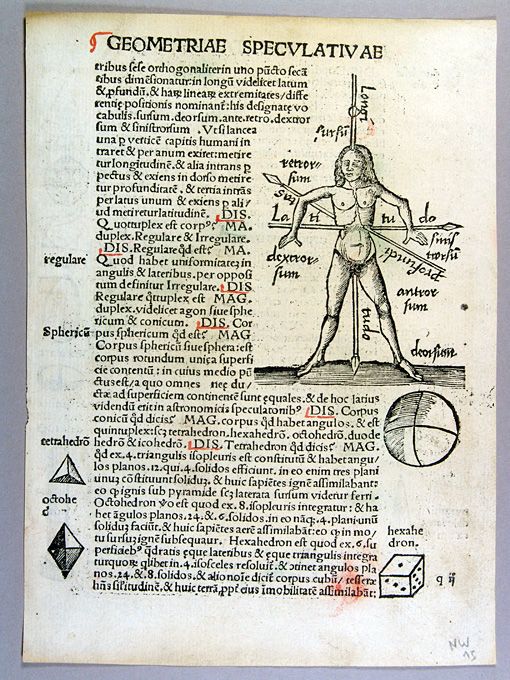 GEOMETRIAE SPECVLATIVAE
tribus sese orthogonaliter in uno pūcto secā
tibus dimēsionatur: in longū videlicet latum
& ꝓfundū. & haꝝ lineaꝝ extremitates / diffe
rentię positionis nominant: his designatę vo
cabulis. sursum. deorsum. ante. retro. dextror
sum & sinistrorsum. Vt si lancea
una ꝑ verticē capitis humani in
traret & per anum exiret: metire
tur longitudinē. & alia intrans ꝑ
pectus & exiens in dorso metire
tur profunditatē. & tertia intrās
per latus unum & exiens ꝑ ali/
ud metiretur latitudinē. DIS.
Quotuplex est corpꝰ? MA.
duplex. Regulare & Irregulare.
DIS. Regulare qd est? MA.
regulare
Quod habet uniformitatē in
angulis & lateribus. per opposi
tum definitur Irregulare. DIS.
Regulare qtuplex est MAG.
duplex. videlicet agon siue sphe
ricum & conicum. DIS. Cor
Sphericū
pus sphericum qd est? MAG
Corpus sphericū siue sphera: est
corpus rotundum unica superfi
cie contentū: in cuius medio pū
ctus est / a quo omnes du /
ctæ ad superficiem continentē sunt equales. & de hoc latius
videndū erit in astronomicis speculationibꝰ. DIS. Corpus
conicū qd dicis? MAG. corpus qd habet angulos. & est
quintuplex: scꝫ tetrahedron. hexahedrō. octohedrō. duode
tetrahedrō
hedrō & icohedrō. DIS. Tetrahedron qd dicis? MAG.
qd ex .4. triangulis isopleuris est constitutū & habet angu/
los planos .12. qui .4. solidos efficiunt. in eo enim tres plani
unuꝫ cōstituunt soliduꝫ. & huic sapiētes ignē assimilabant:
eo ꝙ ignis sub pyramide scꝫ laterata sursum videtur ferri.
octohe
d
Octohedron vō est quod ex .8. isopleuris integratur: & ha
bet āgulos planos .24. & .6. solidos. in eo nāqꝫ .4. plani unū
solidūꝫ faciūt. & huic sapiētes aerē assimilabāt: eo ꝙ in mo/
tu sursuꝫ ignē subsequatur. Hexahedron est quod ex .6. su
hexahe
dron.
perficiebꝰ qdratis ęque lateribus & ęque triangulis integra
tur quoꝝ qlibet in .4. isosceles resoluit. & otinet angulos pla
nos .24. & .8. solidos. & alio noīe dicit corpus cubū / tesseræ
hn̄s sīlitudinē. & huic terrā ꝓpt eius īmobilitatē assīmilabāt:
longi
sursū
retror-
sum
La ti tu do
dextror
sum
sinis
trorsū
profundi
antror
sum
tudo
deorsum
q
NW
15